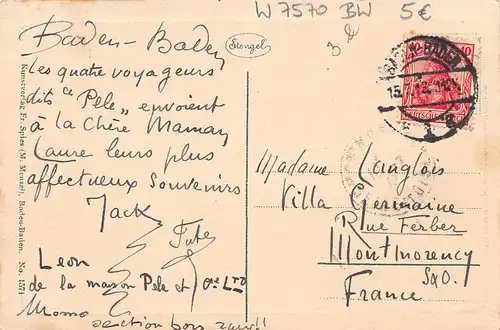 W 7570 BW 5€
Baden-Baden
Stengel
Les quatre voyageurs
dits "Pele" envoient
à la Chère Maman
Laure leurs plus
affectueux souvenirs
Jack
Leon
de la maison Pele et Cie Ltd
Momo
section bors
Madame Langlois
Villa Germaine
Rue Ferber
Montmorency
S&O.
France
BADEN-BADEN
10 10
DEUTSCHES
Kunstverlag Fr. Spies (M. Menzel), Baden-Baden. No. 1571